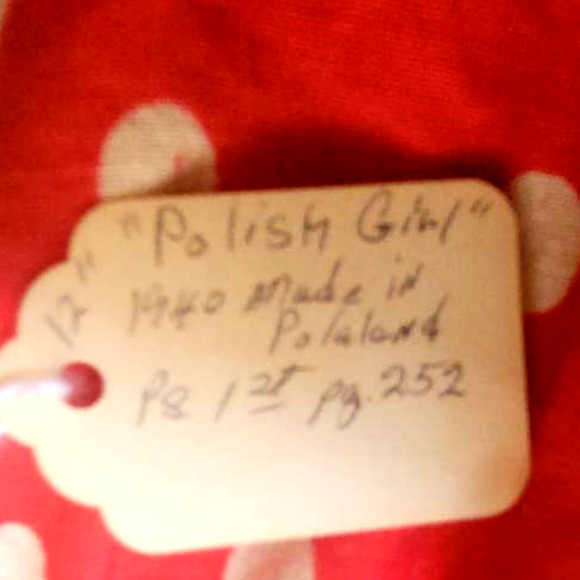 12"
"Polish Girl"
1940 Made in
Polaland
PS 1st pg. 252